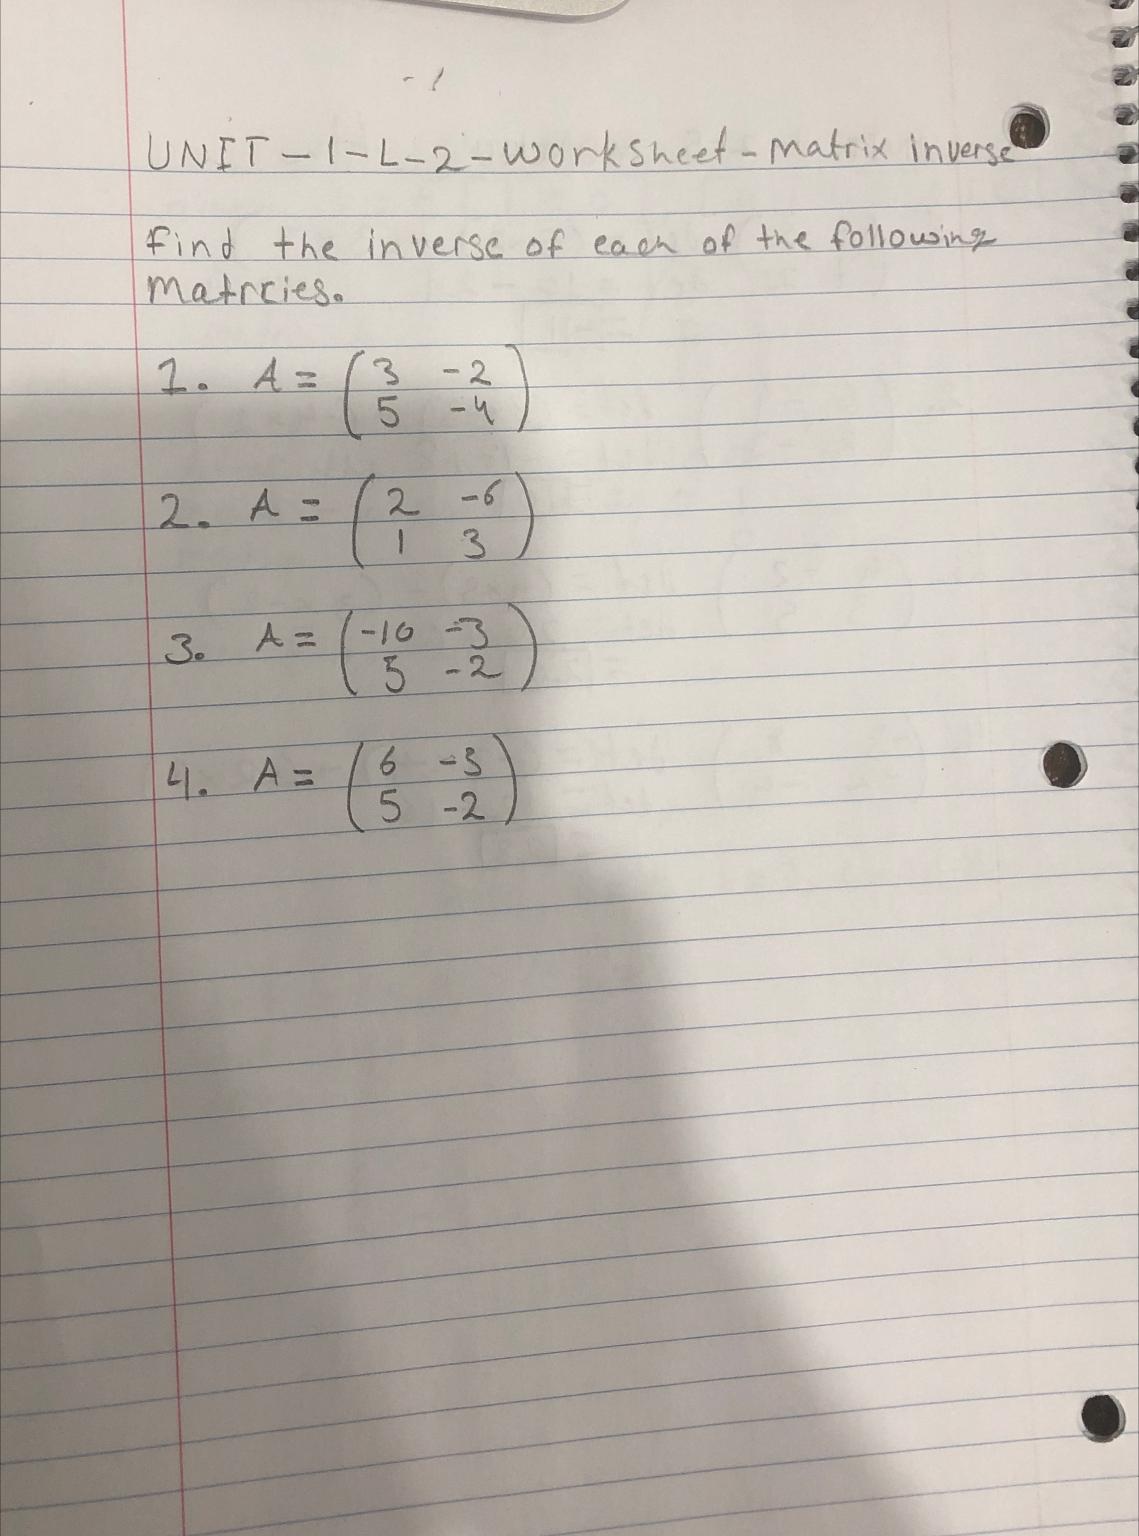 -1
UNIT-1-L-2-Worksheet-Matrix inverse
Find the inverse of each of the following
Matrcies.
1. A = ( 3 -2
5 -4 )
2. A = ( 2 -6
1 3 )
3. A = ( -10 -3
5 -2 )
4. A = ( 6 -3
5 -2 )